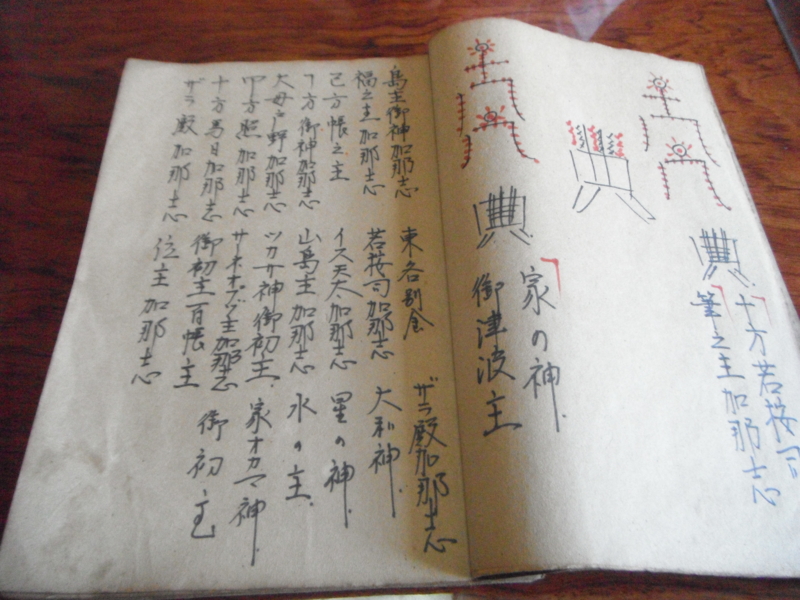 十方若按司
筆之主加那志
典
家の神
御津波主
典
島主御神加那志
福之主加那志
己方帳之主
大母戸野加那志
四方照加那志
十方馬日加那志
ザラ殿加那志
東各別金
若按司加那志
イス天太加那志
山島主加那志
ツカサ神御初主
御初主百帳主
位主加那志
ザラ殿加那志
大和神
星の神
水の主
家オカマ神
御初主